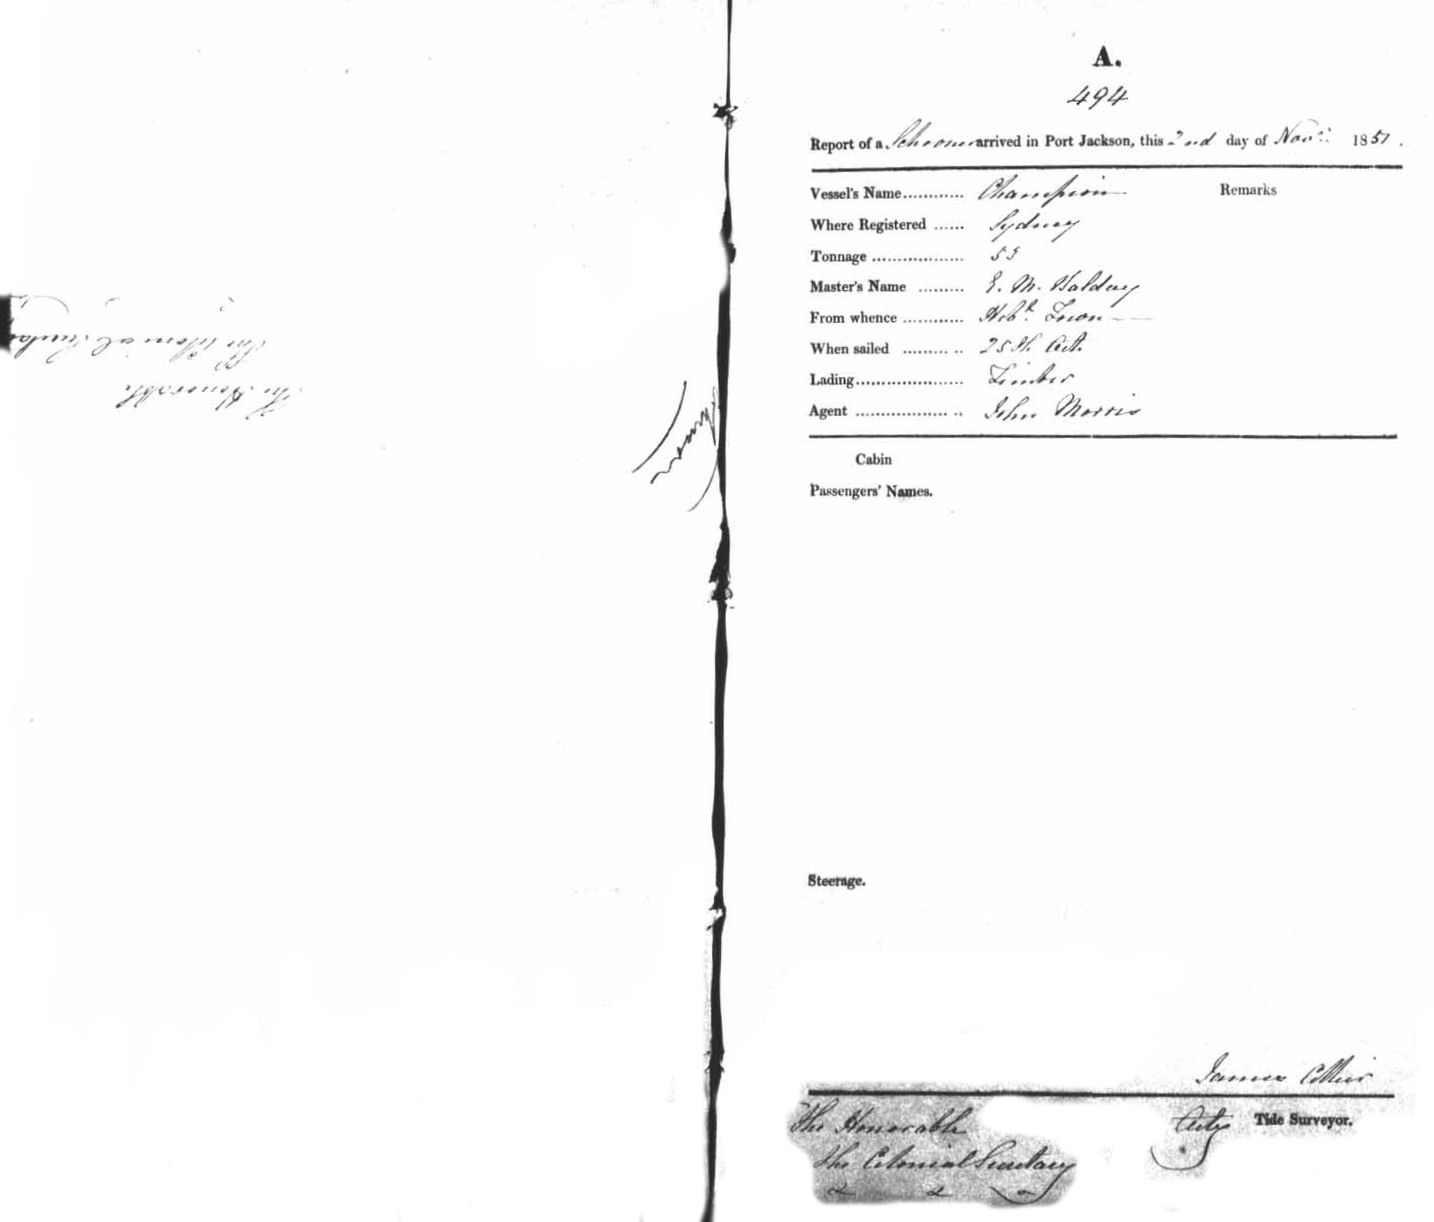 The Honorable
The Colonial Secretary
A.
494
Report of a Schooner arrived in Port Jackson, this 2nd day of Novr. 1851.
Vessel's Name............ Champion Remarks
Where Registered ...... Sydney
Tonnage .................. 53
Master's Name ......... E. M.
From whence ............ Hobt. Town
When sailed ......... .. 25th Oct.
Lading..................... Timber
Agent .................. .. John Morris
Cabin
Passengers' Names.
Steerage.
James
Actg Tide Surveyor.
The Honorable
The Colonial Secretary